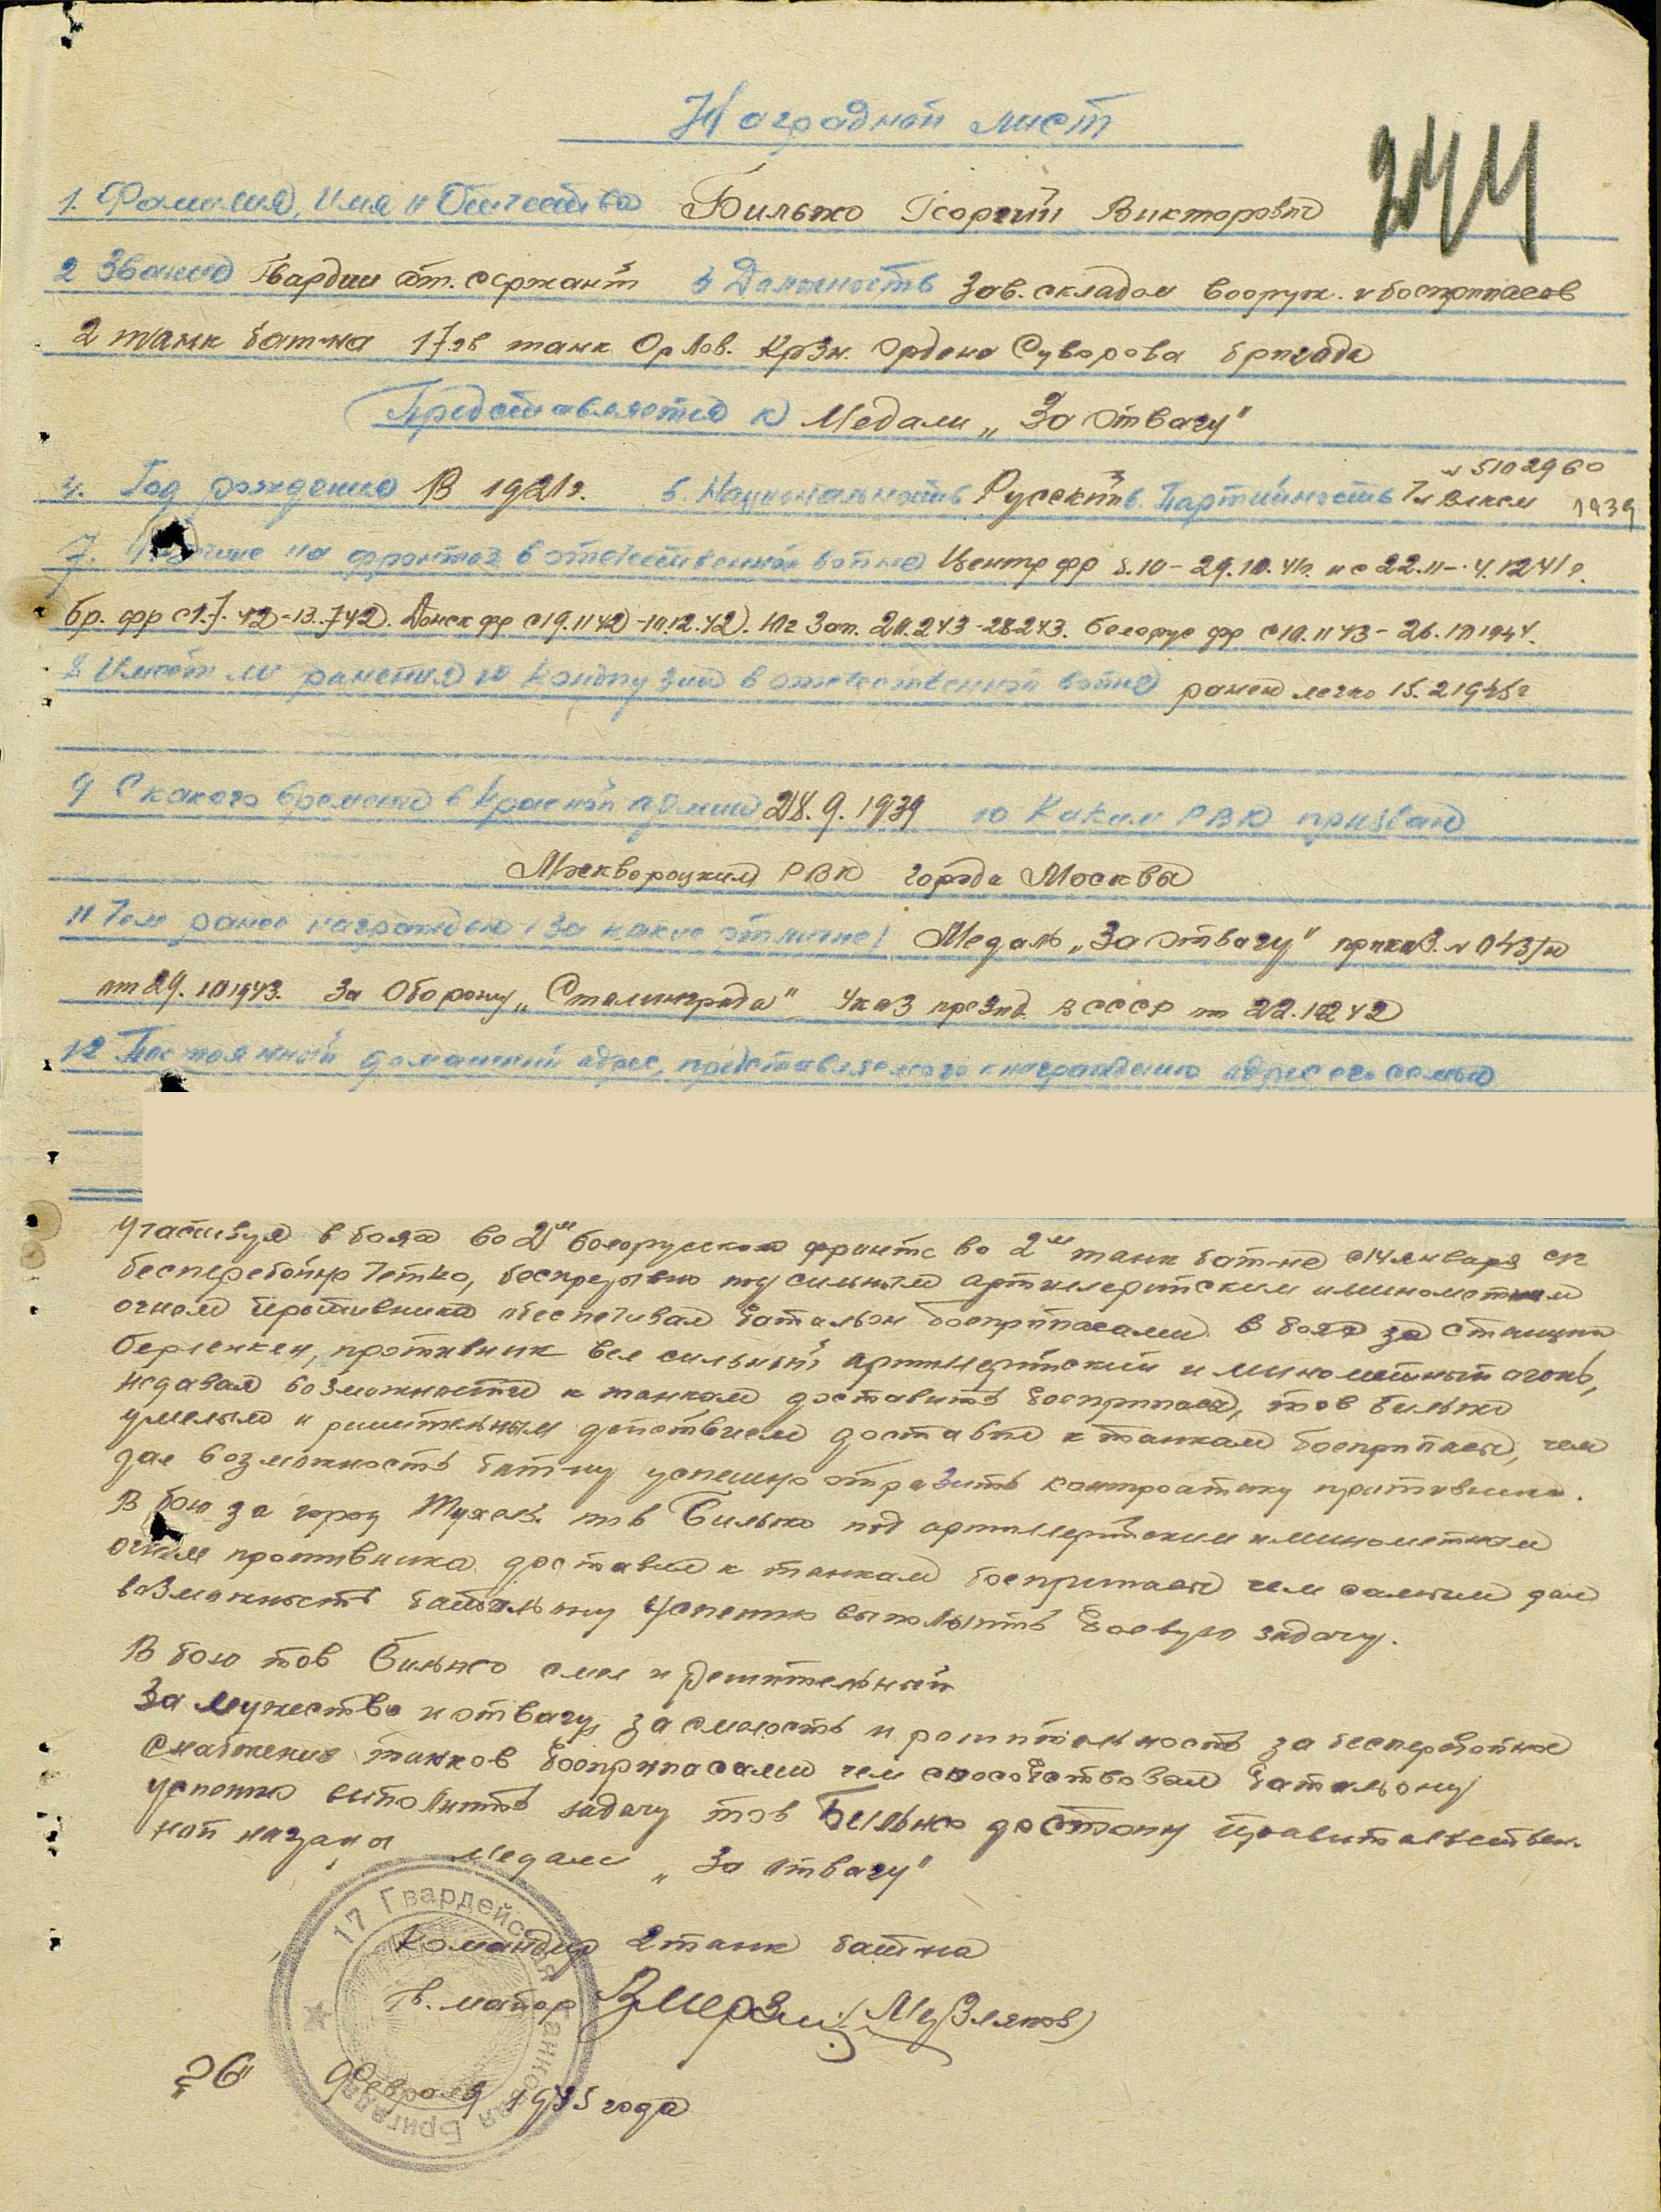 Наградной лист
244
1. Фамилия, Имя и Отчество Билько Георгий Викторович
2 Звание Гвардии ст. сержант 3 Должность Зав. складом вооруж. и боеприпасов
2 танк бат-на 17 гв танк Орлов. Крзн. Ордена Суворова бригада
Представляется к Медали „За Отвагу"
№ 5102960
4. Год рождения В 1921г. 5. Национальность Русский 6. Партийность Чл ВЛКСМ 1939
7. Участие на фронтах в отечественной войне Центр фр 8.10-29.10.41г. и с 22.11-4.12 41г.
бр. фр с 1.7.42-13.7 42. Донск фр с 19.11 42-10.12.42. Юг Зап. 20.2 43-28 2 43. белорус фр с 10.11 43- 26. 1944.
8 Имеет ли ранения и контузии в отечественной войне ранен легко 15.2 1945г
9 С какого времени в Красной армии 28.9.1939 10 Каким РВК призван
Москворецким РВК города Москва
11 Чем ранее награжден (за какие отличие) Медаль „За Отвагу" приказ. № 043/н
от 29.10 1943. За Оборону „Сталинграда" Указ презид. В СССР от 22.12 42
12 Постоянный домашний адрес, представляемого к награждению адрес его семьи
Участвуя в боях во 2м белорусском фронте во 2м танк бат-не с 14 января с/г
бесперебойно четко, беспрерывно под сильным артилерийским и минометным
огнем противника обеспечивал батальон боеприпасами. В боях за станцию
Берленкен, противник вел сильный артилерийский и минометный огонь,
недавая возможности к танкам доставить боеприпасы, тов Билько
умелым и решительным действием доставил к танкам боеприпасы, чем
дал возможность бат-ну успешно отразить контратаку противника.
В бою за город Тухель. тов Билько под артилерийским и минометным
огнем противника доставил к танкам боеприпасы чем самым дал
возможность батальону успешно выполнить боевую задачу.
В бою тов Билько смел и решительный
За мужество и отвагу, за смелость и решительность за бесперебойное
снабжение танков боеприпасами чем способствовал батальону
успешно выполнить задачу тов Билько достоин правительствен.
ной награды медали „За отвагу"
Командир 2 танк бат-на
Гв. майор (Мерзляков)
17 Гвардейская Танковая Бригада
„26" Февраля 1945 года